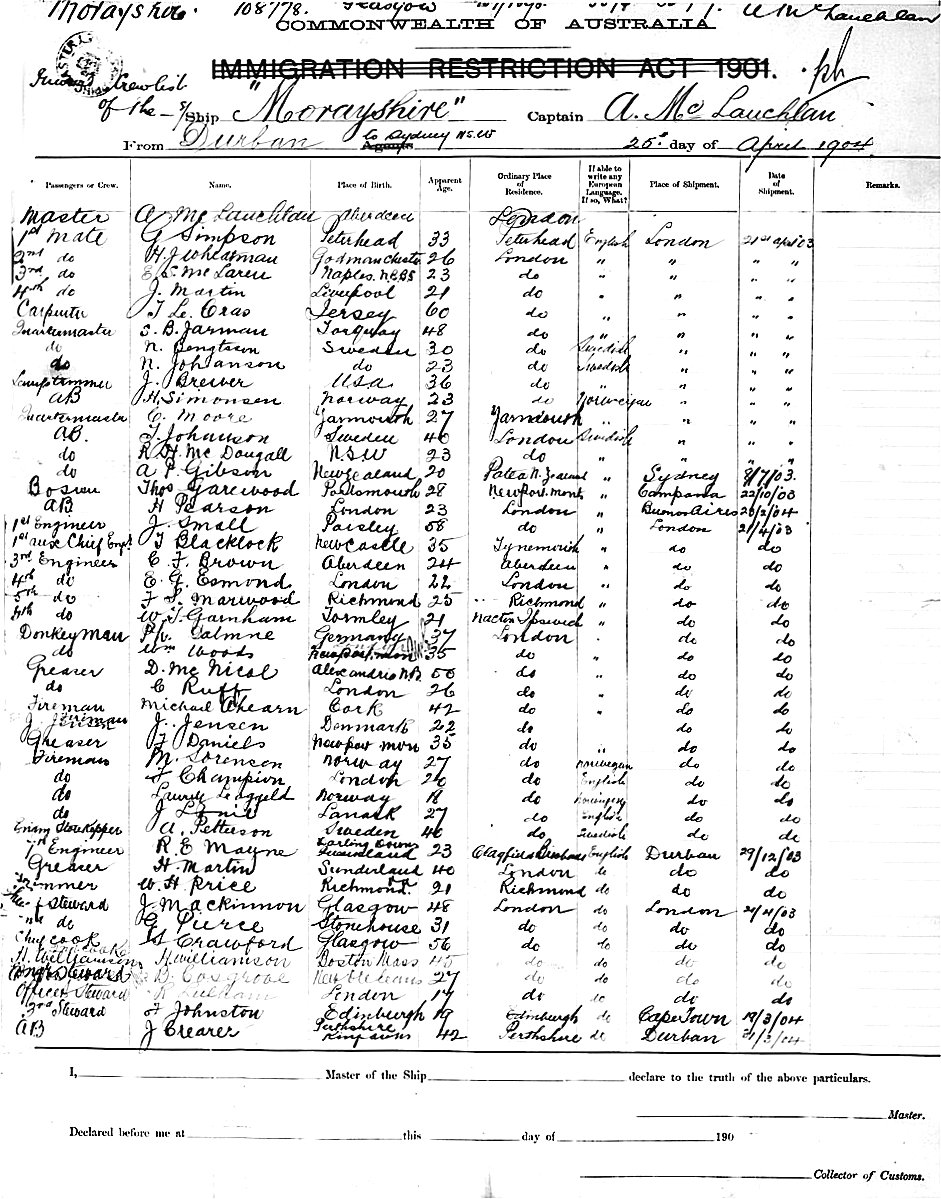 Morayshire. 108778. Glasgow A McLauchlan
COMMONWEALTH OF AUSTRALIA
IMMIGRATION RESTRICTION ACT 1901. ph
Inward Crew list
of the S/Ship "Morayshire" Captain A. Mc Lauchlan
From Durban to Sydney N.S.W 25 day of April 1904
Passengers or Crew. Name. Place of Birth. Apparent Age. Ordinary Place of Residence. If able to write any European Language. If so, What? Place of Shipment. Date of Shipment. Remarks.
Master A Mc Lauchlan Aberdeen London
1st Mate G Simpson Peterhead 33 Peterhead English London 21st apr 03
2nd do H. J Wheatman Godmanchester 26 London " " " "
3rd do Mc Laren Naples. 23 do " " " "
4th do J. Martin Liverpool 21 do " " " "
Carpenter J Le. Cras Jersey 60 do " " " "
Quartermaster S. B. Jarman Torquay 48 do " " " "
do N. Bengtsson Sweden 30 do Swedish " " "
do N. Johanson do 23 do Swedish " " "
Lamptrimmer J. Brewer USA 36 do " " " "
AB H. Simonsen Norway 23 do Norweigan " " "
Quartermaster C. Moore Yarmouth 27 Yarmouth " " " "
AB. J. Johanson Sweden 40 London Swedish " " "
do R H. Mc Dougall NSW 23 do " " " "
do A P. Gibson New Zealand 20 Patea N. Zealand " Sydney 8/7/03.
Bosun Thos Garewood Portsmouth 28 Newport. mon " Campana 22/10/03
AB H Pearson London 23 London " Buenos Aires 20/2/04
1st Engineer J. Small Paisley 58 do " London 21/4/03
1st aux Chief Engr. T Blacklock Newcastle 35 Tynemouth " do do
3rd Engineer C. F. Brown Aberdeen 24 Aberdeen " do do
4th do E. G. Esmond London 22 London " do do
5th do F S. Marwood Richmond 25 Richmond " do do
4th do W. J. Garnham 21 Nacton Ipswich " do do
Donkeyman Germany 37 London do do
do Wm Woods Newport. mon 35 do " do do
Greaser D. Mc Nicol Alexandria NB 50 do " do do
do C Ruff London 26 do " do do
Fireman Michael Ahearn Cork 42 do " do do
J. Fireman J. Jensen Denmark 22 do do do
Greaser J Daniels Newport mon 35 do " do do
Fireman M. Sorenson Norway 27 do Norwegan do do
do F Champion London 20 do English do do
do Norway 18 do do do
do J Lanark 27 do English do do
Storekeeper A. Petterson Sweden 40 do Swedish do do
Engineer R. E Mayne Darling Downs Queensland 23 English Durban 29/12/03
Greaser H. Martin Sunderland 40 London do do do
Trimmer W. H Price Richmond 21 Richmond do do do
Steward J. Mackinnon Glasgow 48 London do London 21/4/03
do G Pierce Stonehouse 31 do do do do
Chief cook Crawford Glasgow 56 do do do do
H. Williamson H Williamson Boston Mass 45 do do do
Steward B. Cosgrove New Orleans 27 do do do do
Officers Steward London 17 do do do do
3rd Steward F Johnston Edinburgh 19 Edinburgh do Cape Town 18/3/04
AB J Crearer Perthshire 42 Perthshire do Durban 31/3/04
I, Master of the Ship declare to the truth of the above particulars.
Master.
Declared before me at this day of 190
Collector of Customs.